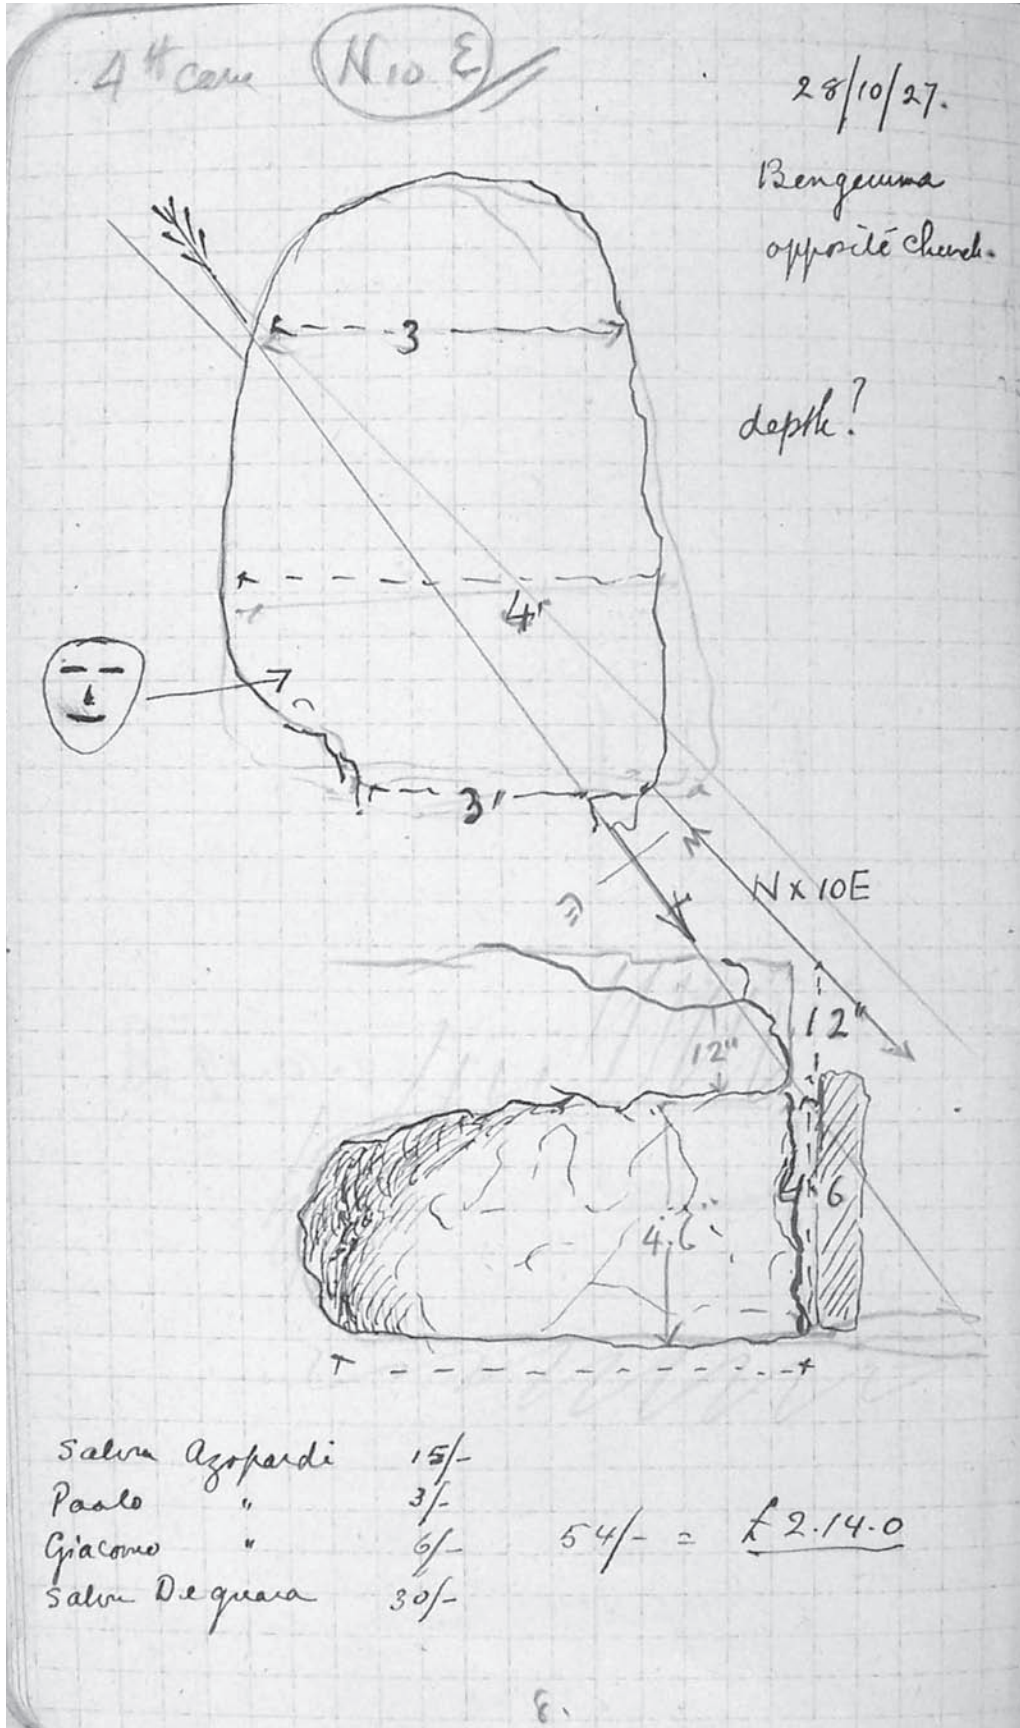 4th cave N10 E
28/10/27.
Bengemma
opposite Church.
3
depth?
4'
3'
N x 10E
12"
12"
4.6"
4" 6
Salvu Azopardi 15/-
Paolo " 3/-
Giacomo " 6/-
54/- = £2.14.0
Salvu Deguara 30/-
8.